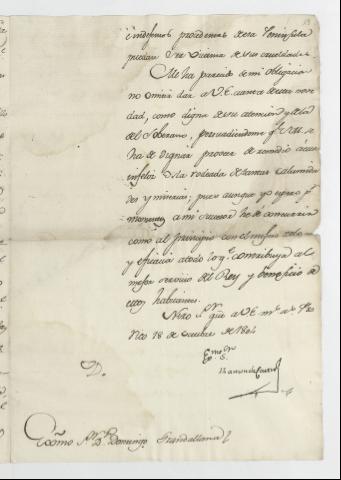 indefensos procedentes de esa Peninsula
puedan ser victima de sus crueldades.
Me ha parecido de mi obligacion
no omitir dar a V.E. cuenta de esta nove
dad, como digna de su atencion y de la
del Soberano, persuadiendome q.e S.M. se
ha de dignar proveer de remedio á esta
infeliz Isla rodeada de tantas calamida
des y miserias; pues aunque yo espero p.r
momentos a mi succesor he de comunicar
como al principio con el mismo zelo
y eficacia a todo lo q.e contribuya al
mejor servicio del Rey y beneficio de
estos habitantes.
Ntro S.or gue a V.E. m.s a.s Pto
Rico 18 de Octubre de 1804
Exmo S.or
Ramon de Castro
D.
Exmo S.or D.n Domingo Grandallana